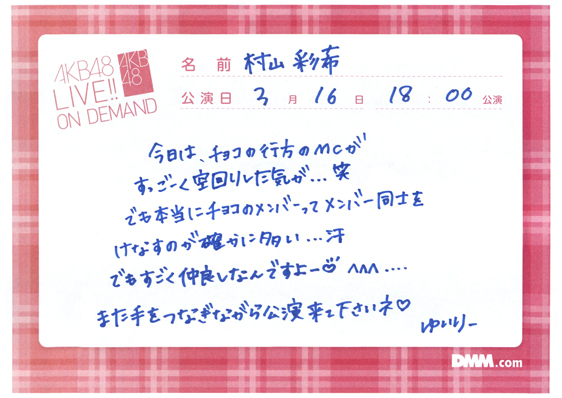 AKB48
LIVE!!
ON DEMAND
AKB
48
名前 村山 彩希
公演日 3月16日 18:00公演
今日は、チョコの行方のMCが
すっごーく空回りした気が…笑
でも本当にチョコのメンバーってメンバー同士を
けなすのが確かに多い…汗
でもすごく仲良しなんですよー♡ ^^^ ....
また手をつなぎながら公演来て下さいネ♡
ゆいりー
DMM.com